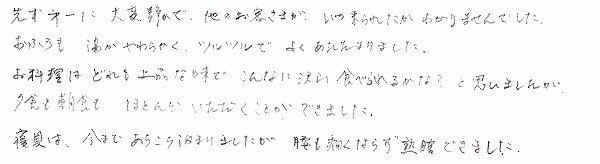 先ず第一に 大変静かで、他のお客さまが、いつ来られたかわかりませんでした。
おふろも 湯がやわらかく、ツルツルで よくあたたまりました。
お料理は どれも上品な味で こんなに沢山 食べられるかな? と思いましたが、
夕食も朝食も ほとんど いただくことができました。
寝具は、今まで あちこち泊まりましたが 腰も痛くならず 熟睡できました。